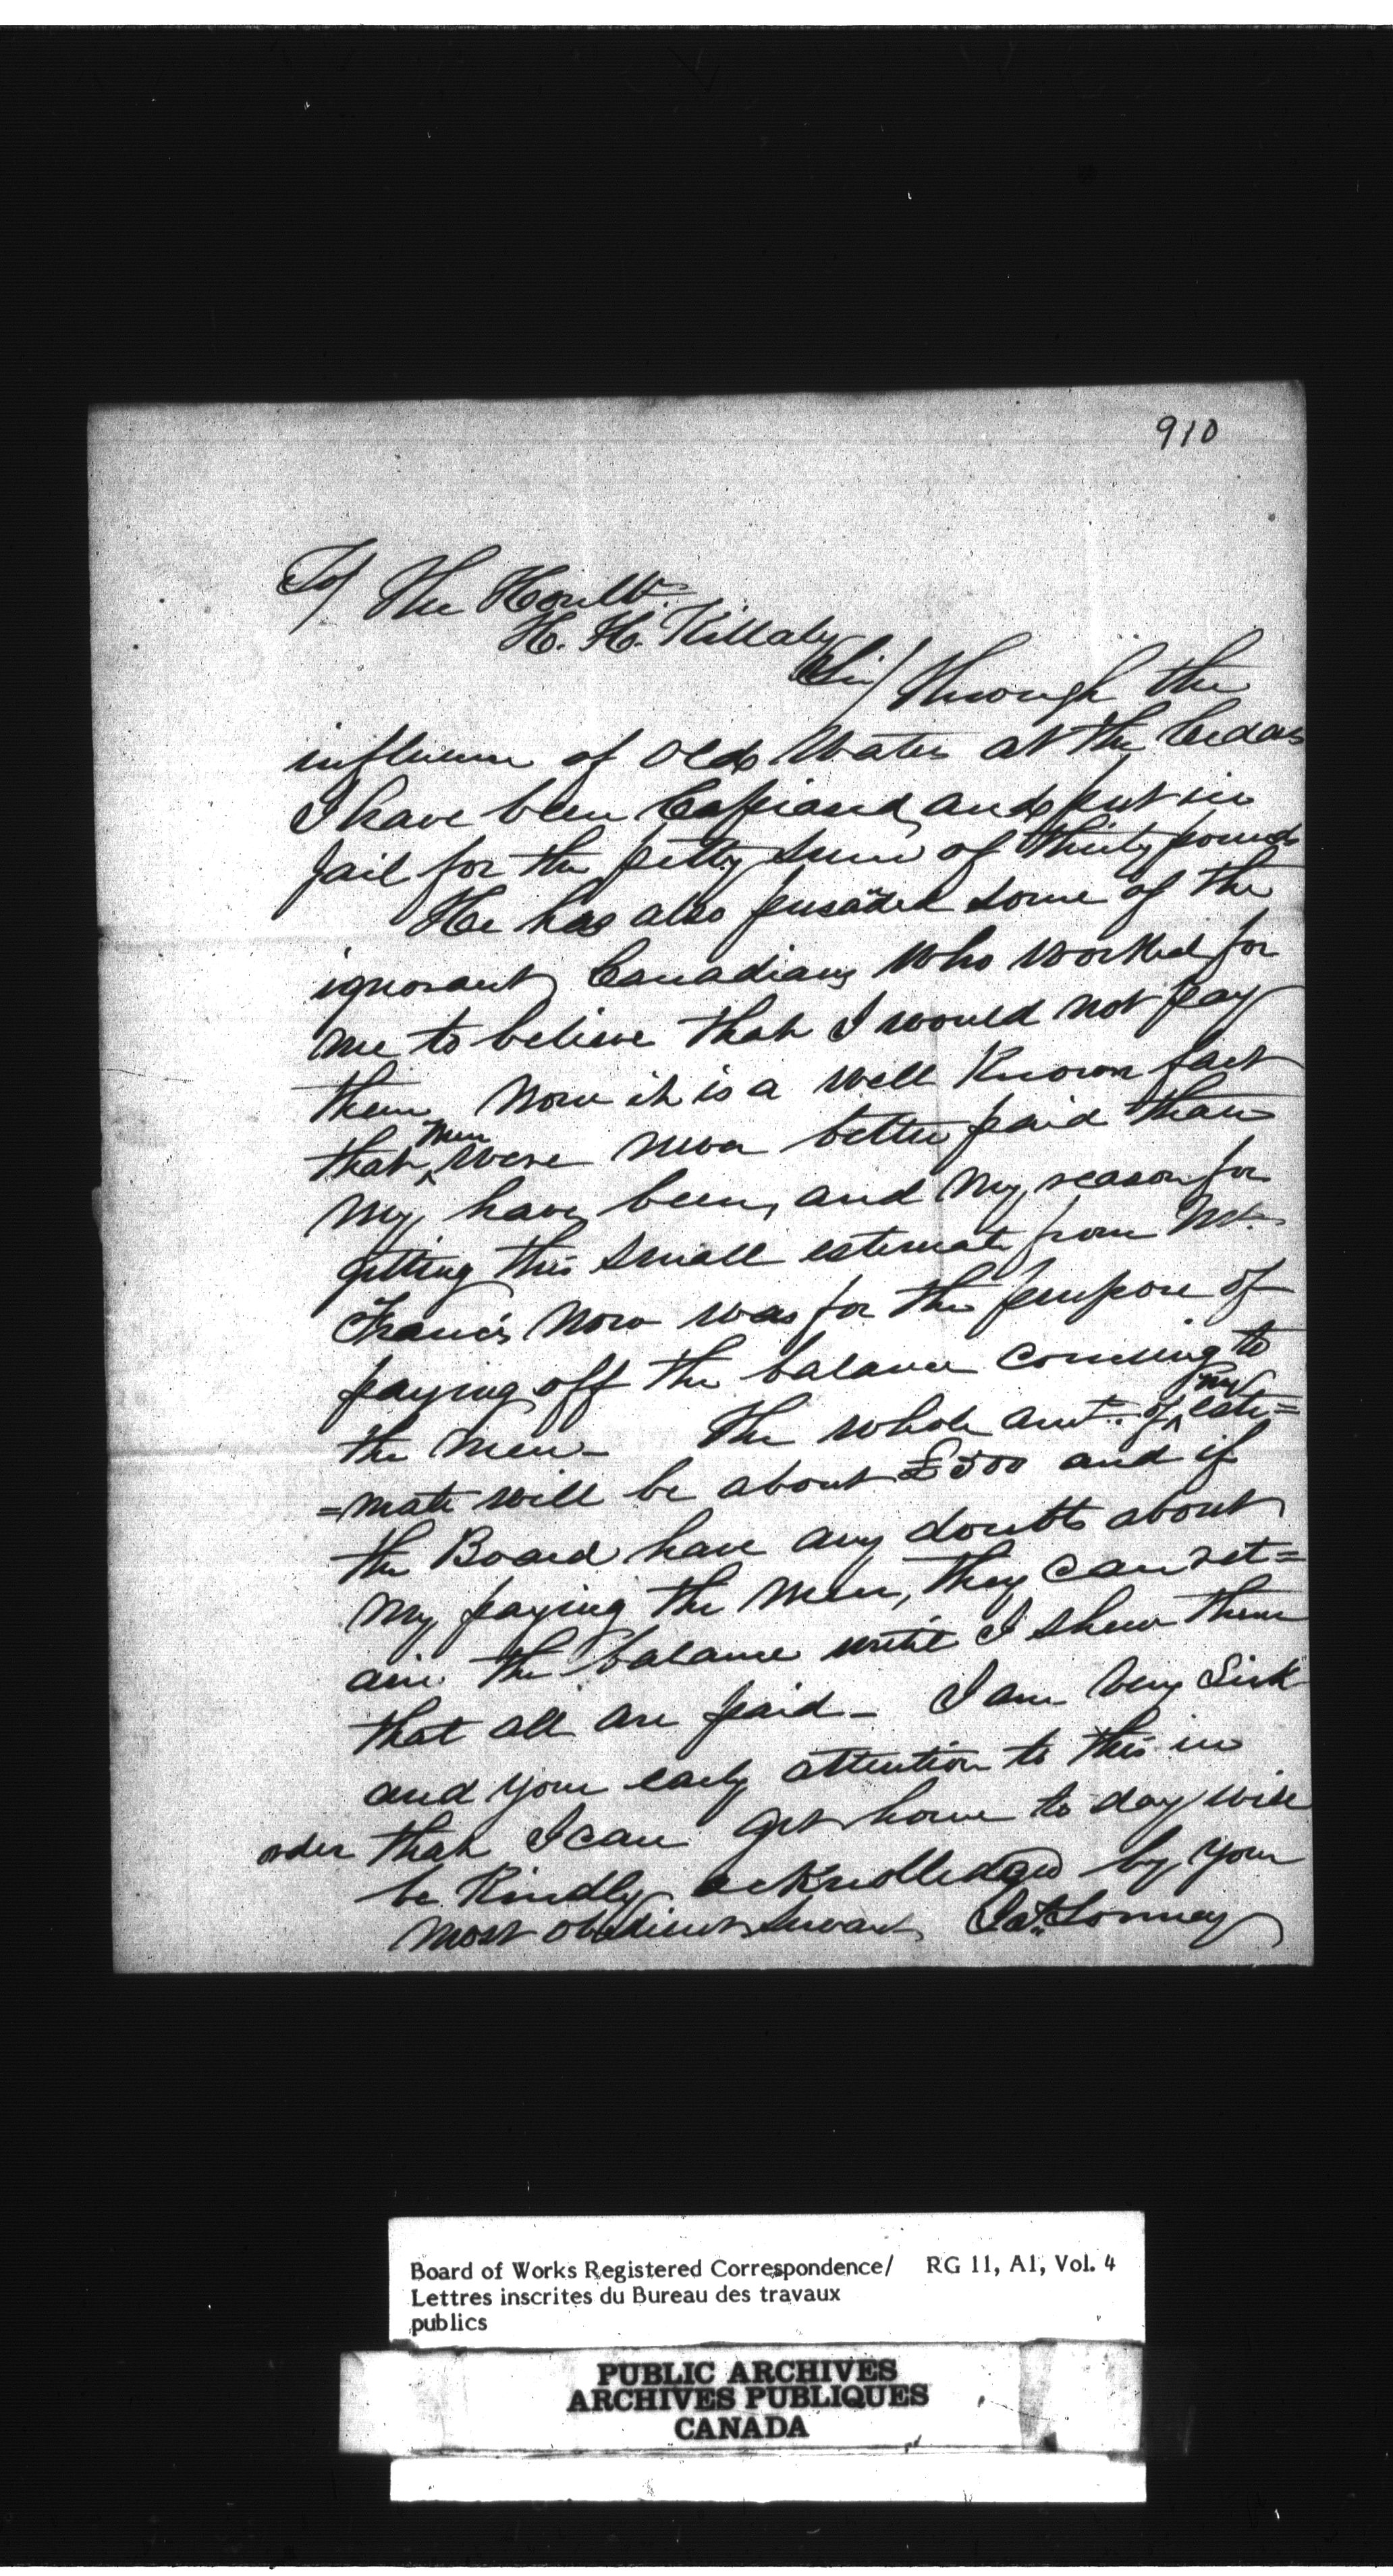 910
To/ The Honble
H. H. Killaly
Sir/ through the
influence of old Waters at the Cedars
I have been Capiased, and put in
Jail for the petty Sum of thirty pounds
He has also pursaded some of the
ignorant Canadians who worked for
me to believe that I would not pay
them, Now it is a well Known fact
that ^men were never better paid than
my have been, and My reason for
getting this small estemate from Mr.
Francis Now was for the purpose of
paying off the balance comming to
the Men - The whole amt. of ^my este=
=mate will be about £500 and if
the Board have any doubts about
My paying the Men, they can ret=
ain the balance until I shew them
that all are paid - I am very Sick
and your early attention to this in
order that I can get home to day will
be Kindly acknolledged by your
most obedient Servant,
Board of Works Registered Correspondence/ RG 11, A1, Vol. 4
Lettres inscrites du Bureau des travaux
publics
PUBLIC ARCHIVES
ARCHIVES PUBLIQUES
CANADA